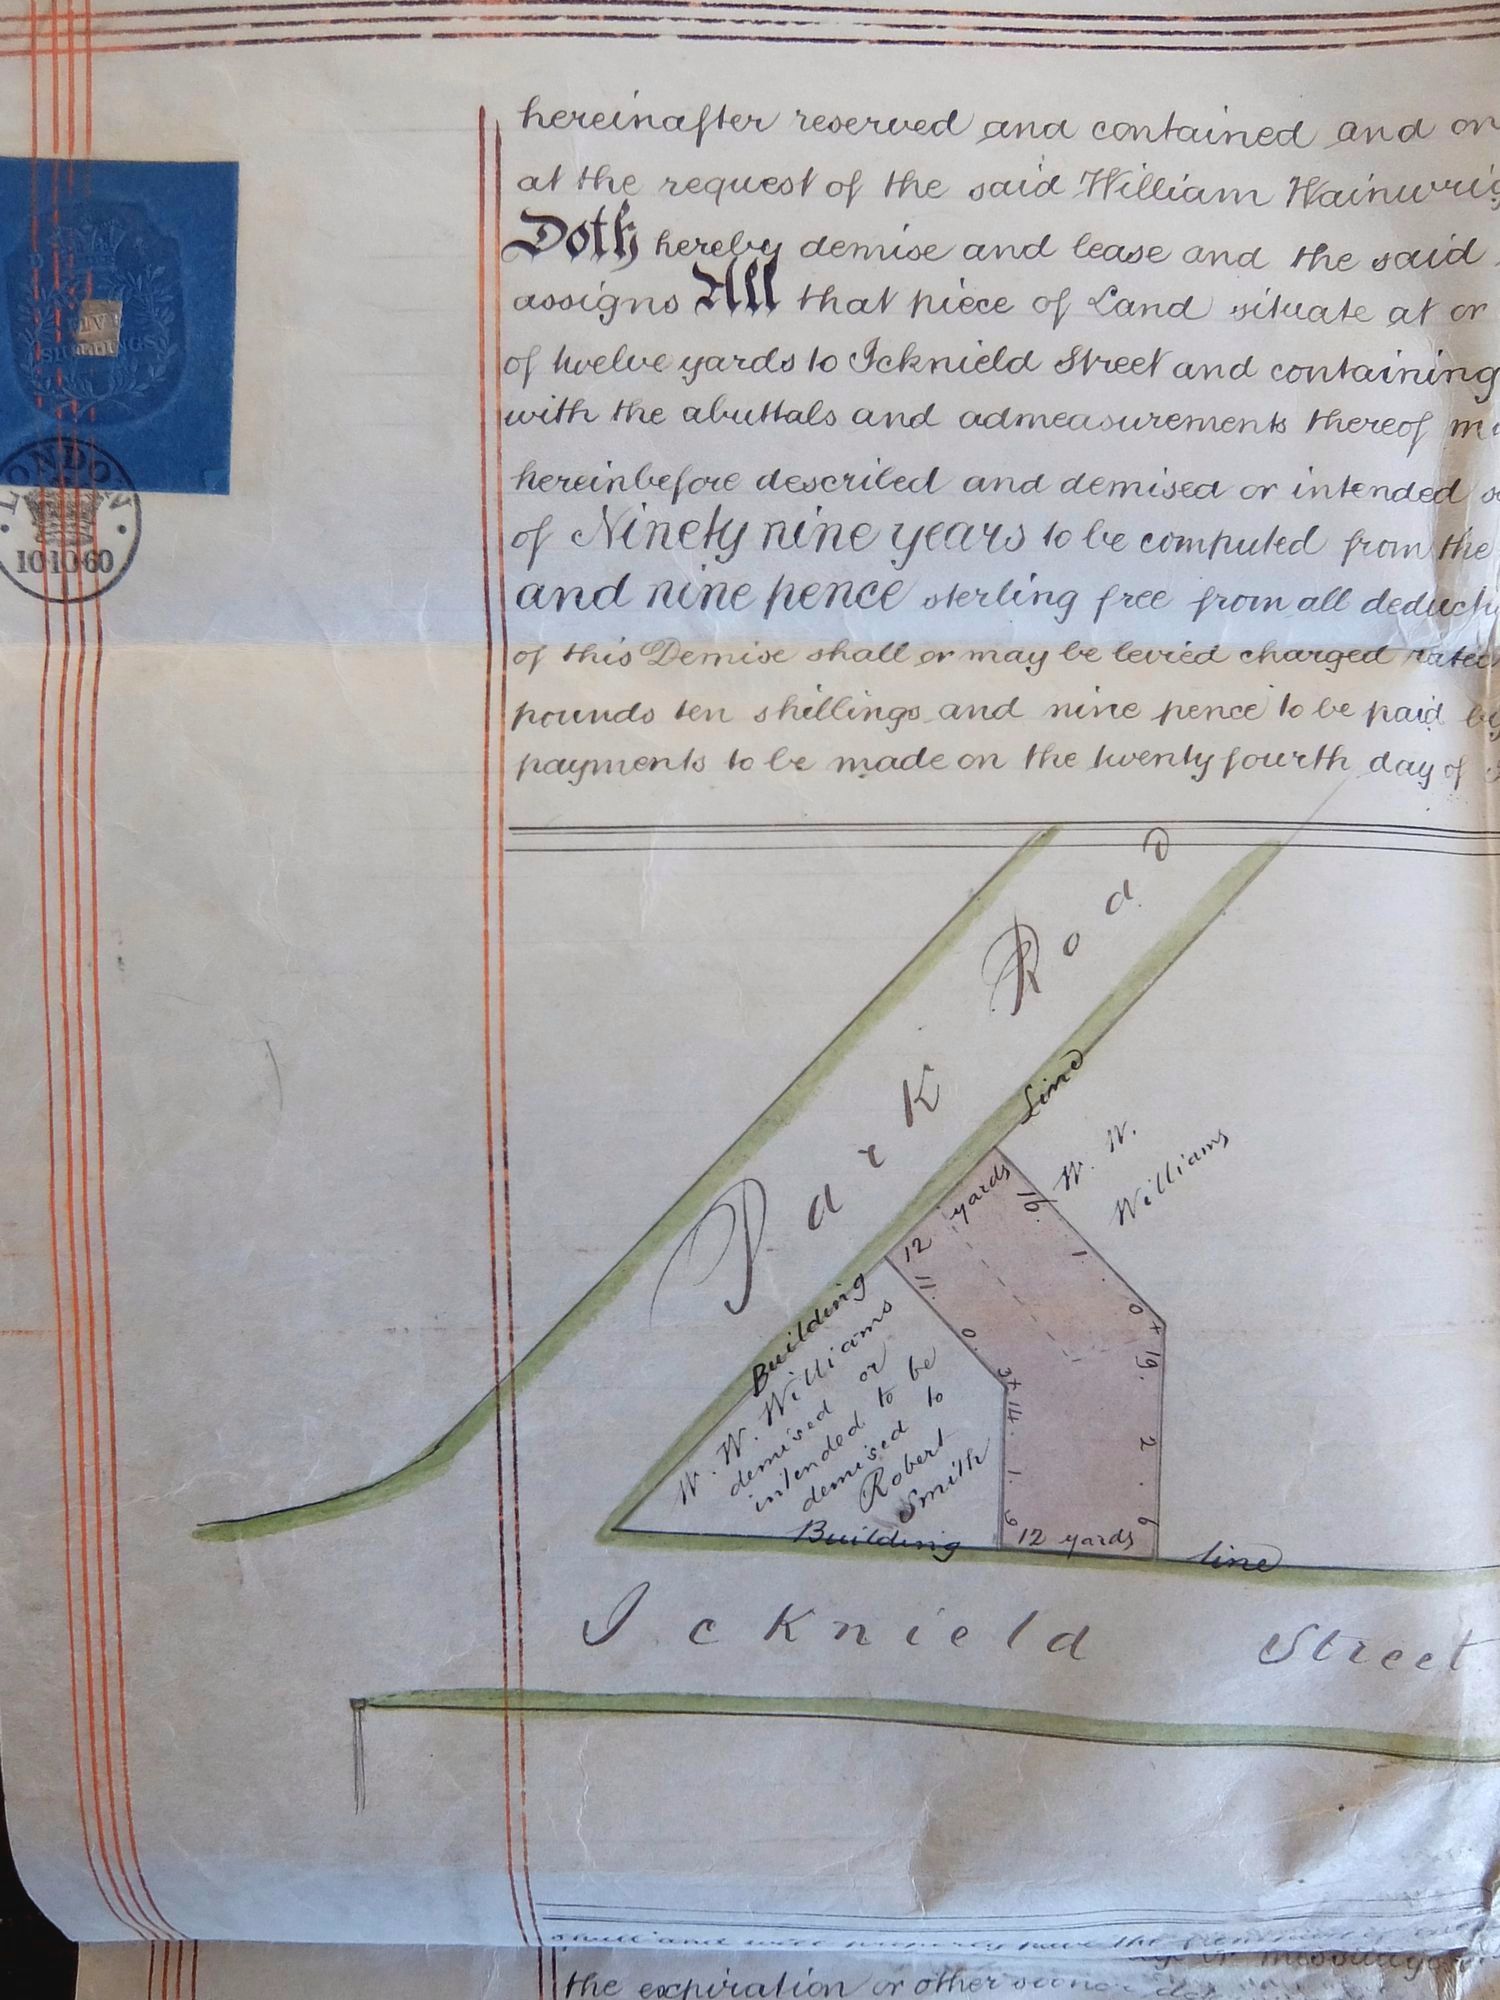 hereinafter reserved and contained and on
at the request of the said William Wainwrig
Doth hereby demise and lease and the said
assigns All that piece of Land situate at or
of twelve yards to Icknield Street and containing
with the abuttals and admeasurements thereof
hereinbefore described and demised or intended
of Ninety nine years to be computed from the
and nine pence sterling free from all deducti
of this Demise shall or may be levied charged rated
pounds ten shillings and nine pence to be paid by
payments to be made on the twenty fourth day of
FIVE
SHILLINGS
LONDON
10·10·60
Park Road
Building Line
W. W.
Williams
12 yards
16. 1. 0
11. 0. 3
19. 2. 6
14. 1. 9
12 yards
W. W. Williams
demised or
intended to be
demised to
Robert
Smith
Building line
Icknield Street
the expiration or other sooner